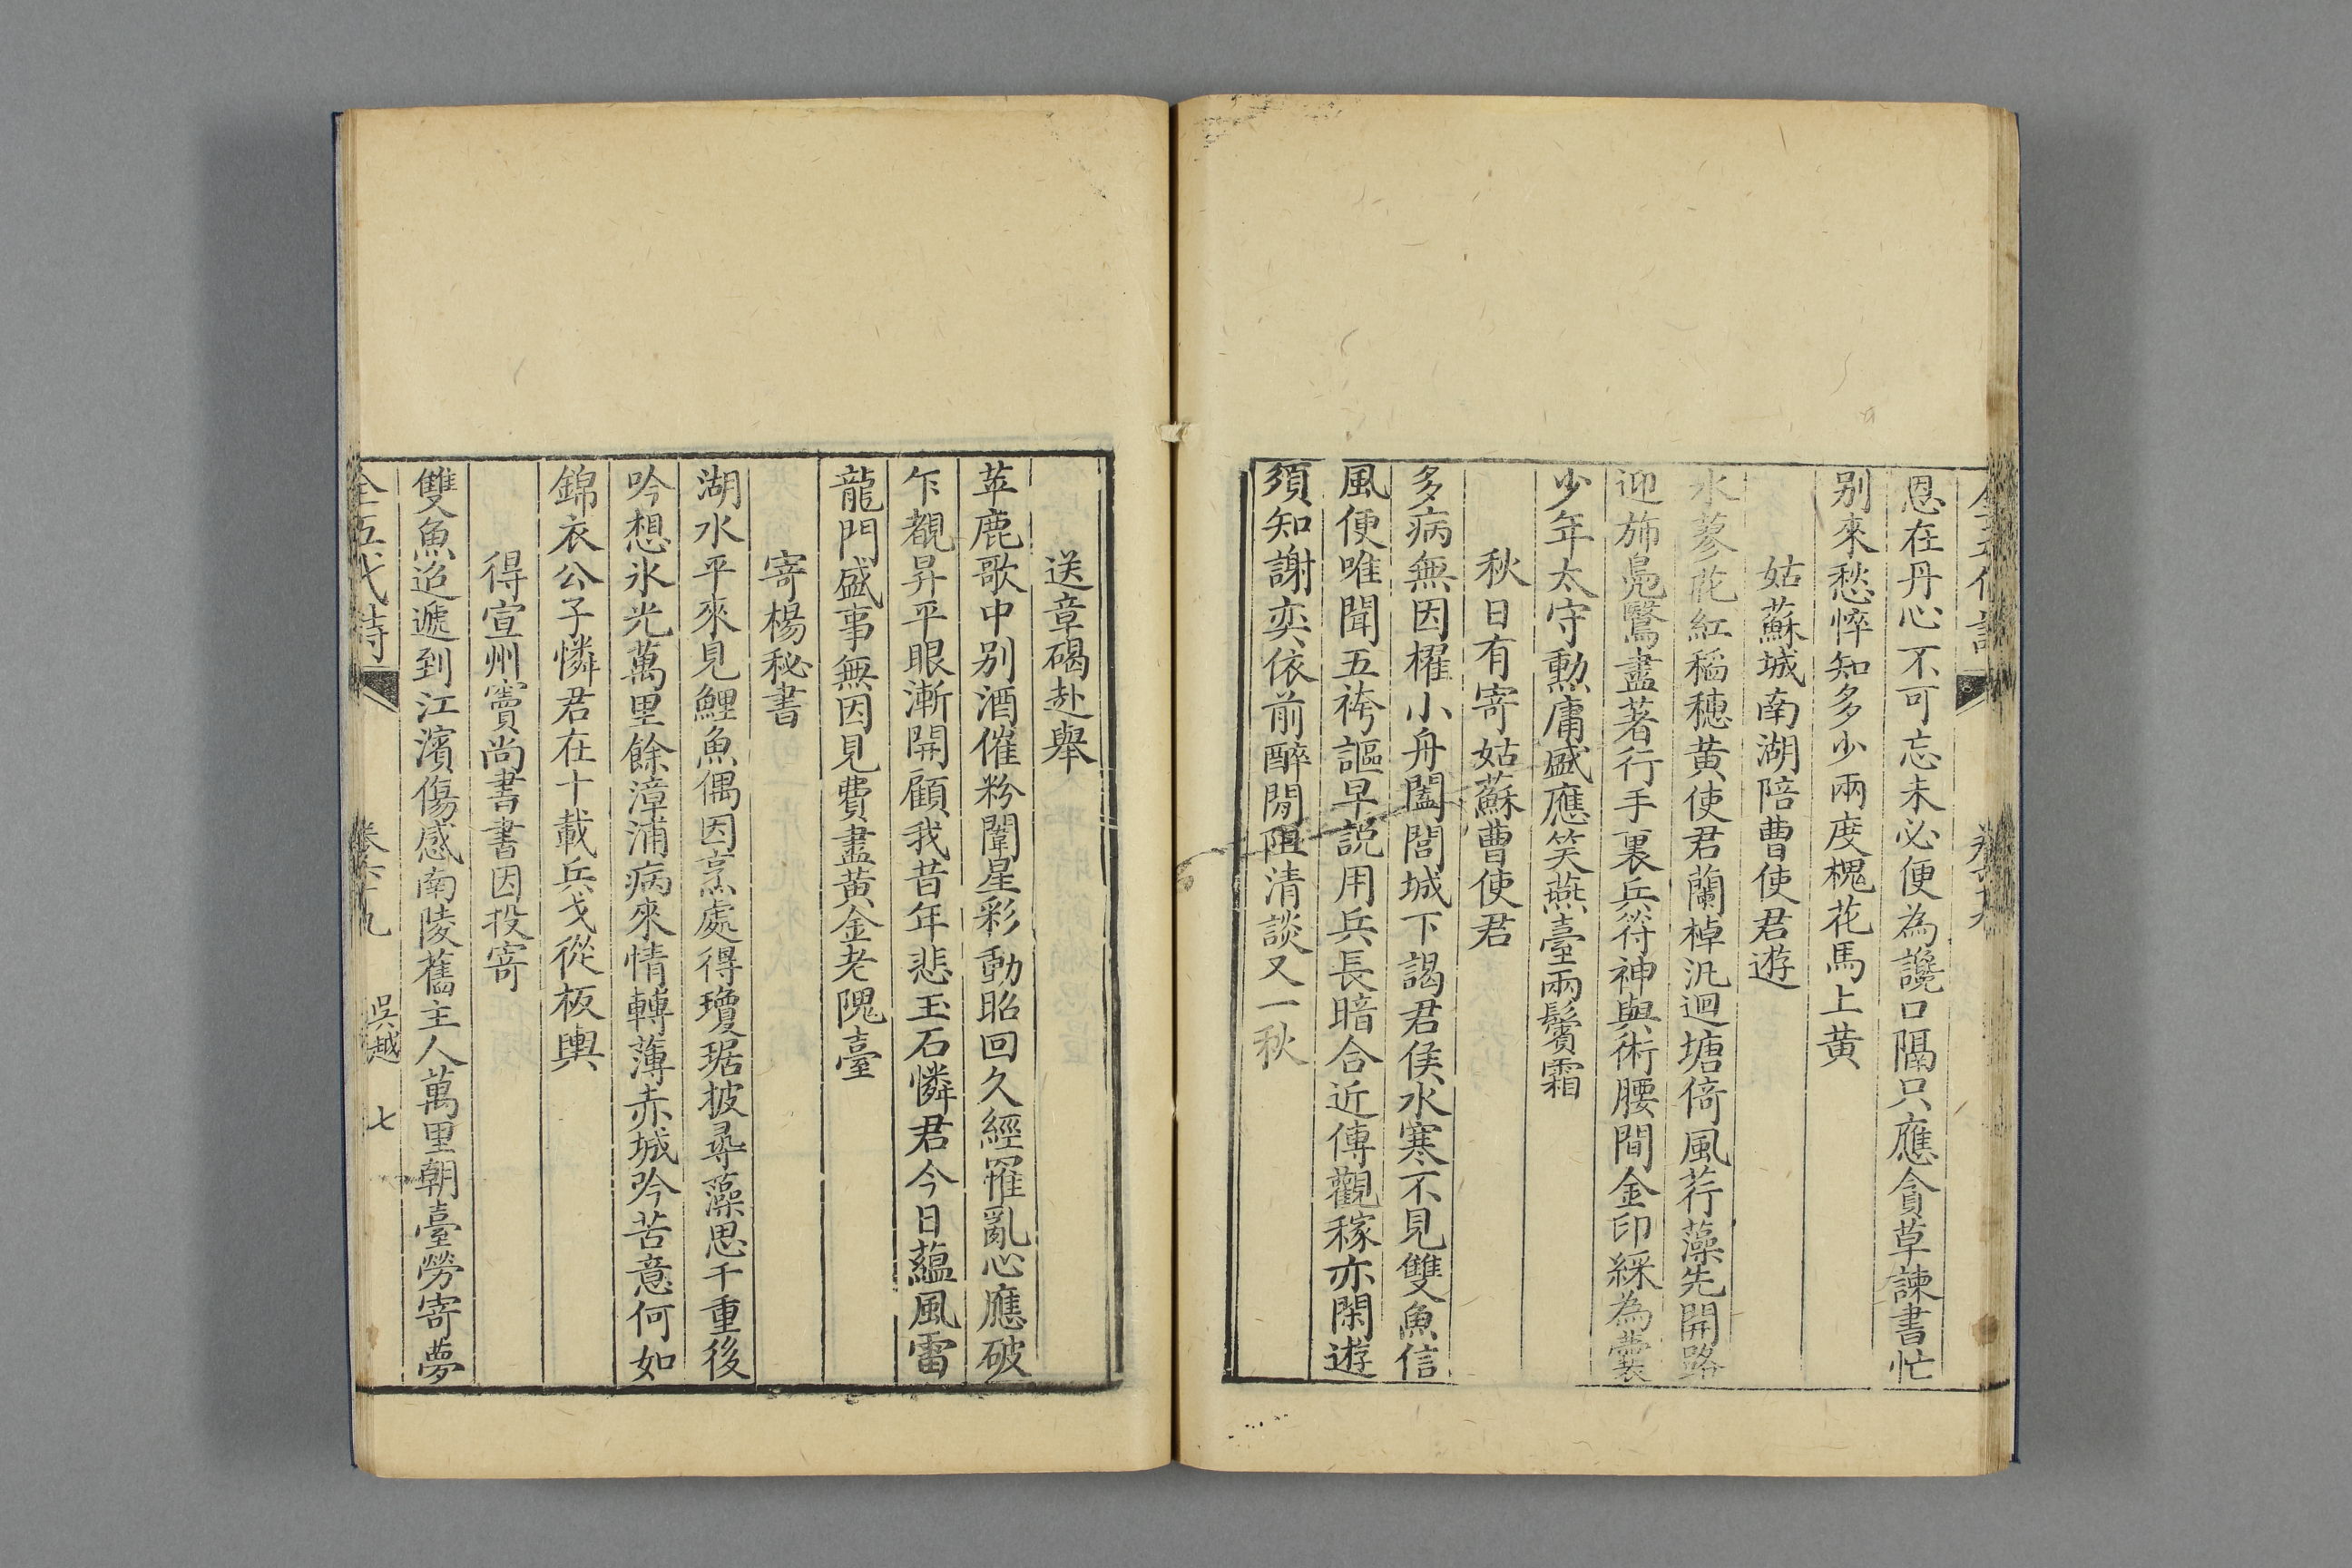 恩在丹心不可忘未必便為讒口隔只應貪草諫書忙
别來愁悴知多少兩度槐花馬上黄
姑蘇城南湖陪曹使君遊
水蓼花紅稻穗黄使君蘭棹汎迴塘倚風荇藻先開路
迎斾鳧鷖盡著行手裏兵符神與術腰間金印綵為囊
少年太守勲庸盛應笑燕臺兩鬢霜
秋日有寄姑蘇曹使君
多病無因櫂小舟闔閭城下謁君侯水寒不見雙魚信
風便唯聞五袴謳早説用兵長暗合近傳觀稼亦閑遊
須知謝奕依前醉閒阻清談又一秋
送章碣赴舉
苹鹿歌中别酒催粉闈星彩動昭回久經罹亂心應破
乍覩昇平眼漸開顧我昔年悲玉石憐君今日藴風雷
龍門盛事無因見費盡黄金老隗臺
寄楊秘書
湖水平來見鯉魚偶因烹處得瓊琚披尋藻思千重後
吟想氷光萬里餘漳浦病來情轉薄赤城吟苦意何如
錦衣公子憐君在十載兵戈從板輿
得宣州竇尚書書因投寄
雙魚迢遞到江濱傷感南陵舊主人萬里朝臺勞寄夢
全五代詩 卷六十九 吳越 七